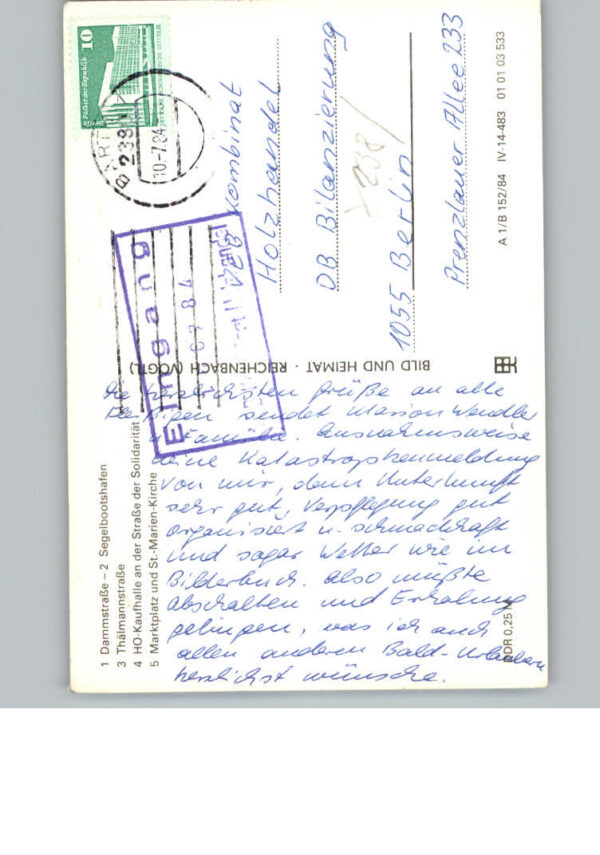 1 Dammstraße – 2 Segelbootshafen
3 Thälmannstraße
4 HO-Kaufhalle an der Straße der Solidarität
5 Marktplatz und St.-Marien-Kirche
Die herzlichsten Grüße an alle
Fleißigen sendet Marion Wendler
u. Familie. Ausnahmsweise
keine Katastrophenmeldung
von mir, denn Unterkunft
sehr gut, Verpflegung gut
organisiert u. schmackhaft
und sogar Wetter wie im
Bilderbuch. Also müßte
abschalten und Erholung
gelingen, was ich auch
allen anderen Bald-Urlaubern
herzlichst wünsche.
DDR 0,25 M
BILD UND HEIMAT · REICHENBACH (VOGTL)
10
Palast der Republik
BART
238
10.-7.84
Eingang
07 84
VEB Kombinat
Holzhandel
DB Bilanzierung
1055 Berlin
Prenzlauer Allee 233
238/
A 1/B 152/84 IV-14-483 01 01 03 533